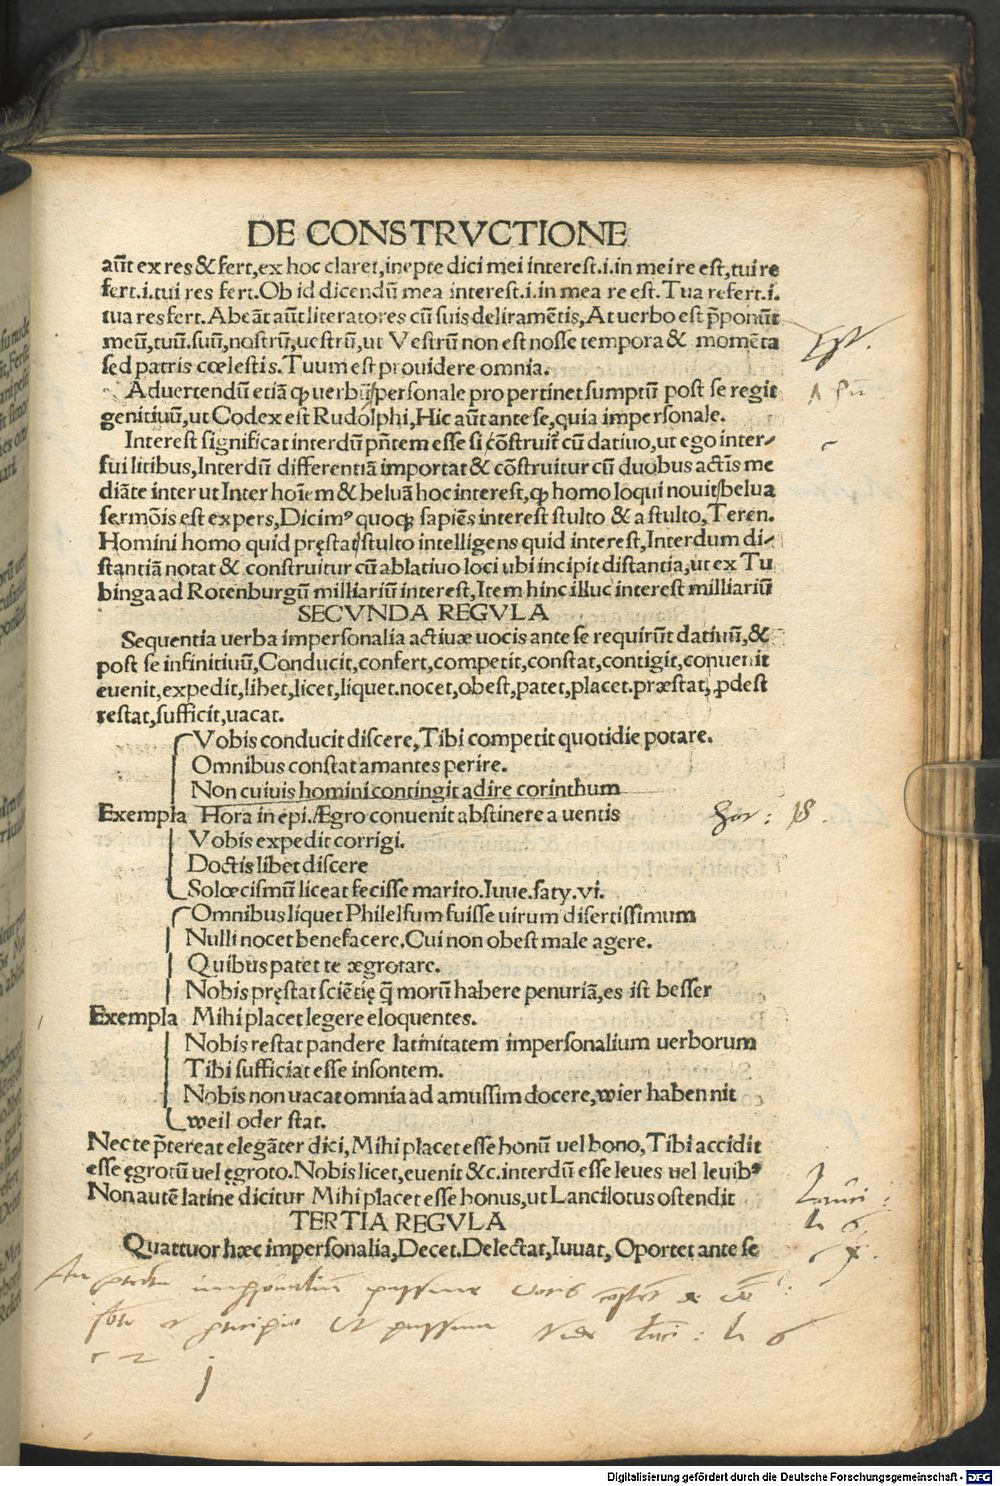 DE CONSTRVCTIONE
aūt ex res & fert, ex hoc claret, inepte dici mei interest .i. in mei re est, tui re
fert .i. tui res fert. Ob id dicendū mea interest .i. in mea re est. Tua refert .i.
tua res fert. Abeāt aūt literatores cū suis deliramētis, At uerbo est p̄ponūt̄
meū, tuū, suū, nostrū, uestrū, ut Vestrū non est nosse tempora & momēta
sed patris cœlestis. Tuum est prouidere omnia.
Aduertendū etiā qꝫ uerbū personale pro pertinet sumptū post se regit
genitiuū, ut Codex est Rudolphi, Hic aūt ante se, quia impersonale.
Interest significat interdū pn̄tem esse si cōstruit̄ cū datiuo, ut ego inter⸗
fui litibus, Interdū differentiā importat & cōstruitur cū duobus actīs me
diāte inter ut Inter hoīem & beluā hoc interest, qꝫ homo loqui nouit belua
sermōis est expers, Dicimꝰ quoqꝫ sapiēs interest stulto & a stulto, Teren.
Homini homo quid pręstat stulto intelligens quid interest, Interdum di⸗
stantiā notat & construitur cū ablatiuo loci ubi incipit distantia, ut ex Tu
binga ad Rotenburgū milliariū interest, Item hinc illuc interest milliariū
SECVNDA REGVLA
Sequentia uerba impersonalia actiuæ uocis ante se requirūt datiuū, &
post se infinitiuū, Conducit, confert, competit, constat, contigit, conuenit
euenit, expedit, libet, licet, liquet. nocet, obest, patet, placet. præstat, ꝓdest
restat, sufficit, uacat.
Vobis conducit discere, Tibi competit quotidie potare.
Omnibus constat amantes perire.
Non cuiuis homini contingit adire corinthum
Exempla Hora in epi. Ægro conuenit abstinere a uentis
Hor: 18.
Vobis expedit corrigi.
Doctis libet discere
Solœcismū liceat fecisse marito. Iuue. saty. vi.
Omnibus liquet Philelfum fuisse uirum disertissimum
Nulli nocet benefacere. Cui non obest male agere.
Quibus patet te ægrotare.
Nobis pręstat sciētię q̄ morū habere penuriā, es ist besser
Exempla Mihi placet legere eloquentes.
Nobis restat pandere latinitatem impersonalium uerborum
Tibi sufficiat esse insontem.
Nobis non uacat omnia ad amussim docere, wier haben nit
weil oder stat.
Nec te p̄tereat elegāter dici, Mihi placet esse bonū uel bono, Tibi accidit
esse ęgrotū uel ęgroto. Nobis licet, euenit &c. interdū esse leues uel leuibꝰ
Non autē latine dicitur Mihi placet esse bonus, ut Lancilotus ostendit
TERTIA REGVLA
Quattuor hæc impersonalia, Decet. Delectat, Iuuat, Oportet ante se
Digitalisierung gefördert durch die Deutsche Forschungsgemeinschaft - DFG